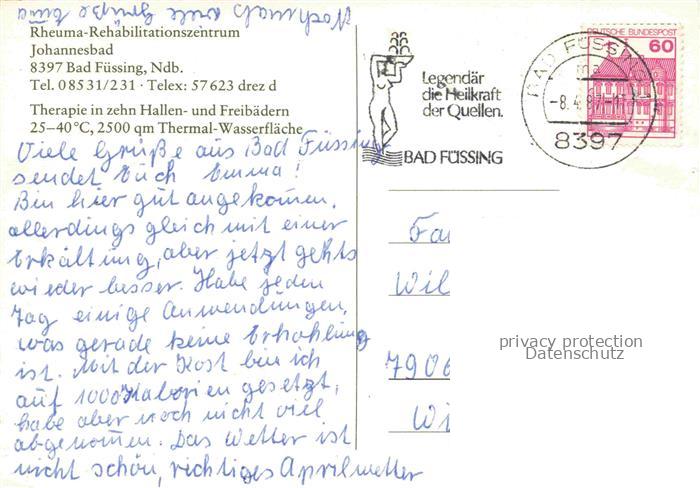 Nochmals viele Grüße Emma
Rheuma-Rehabilitationszentrum
Johannesbad
8397 Bad Füssing, Ndb.
Tel. 08531/231 · Telex: 57623 drez d
Therapie in zehn Hallen- und Freibädern
25–40°C, 2500 qm Thermal-Wasserfläche
Viele Grüße aus Bad Füssing
sendet Euch Emma!
Bin hier gut angekommen,
allerdings gleich mit einer
Erkältung, aber jetzt gehts
wieder besser. Habe jeden
Tag einige Anwendungen,
was gerade keine Erhohlung
ist. Mit der Kost bin ich
auf 1000 Kalorien gesetzt,
habe aber noch nicht viel
abgenommen. Das Wetter ist
nicht schön, richtiges Aprilwetter
Legendär
die Heilkraft
der Quellen.
BAD FÜSSING
DEUTSCHE BUNDESPOST
60
BAD FÜSSING
ma
-8.4.87-1
8397
Fa
Wil
7906
Wi
privacy protection
Datenschutz